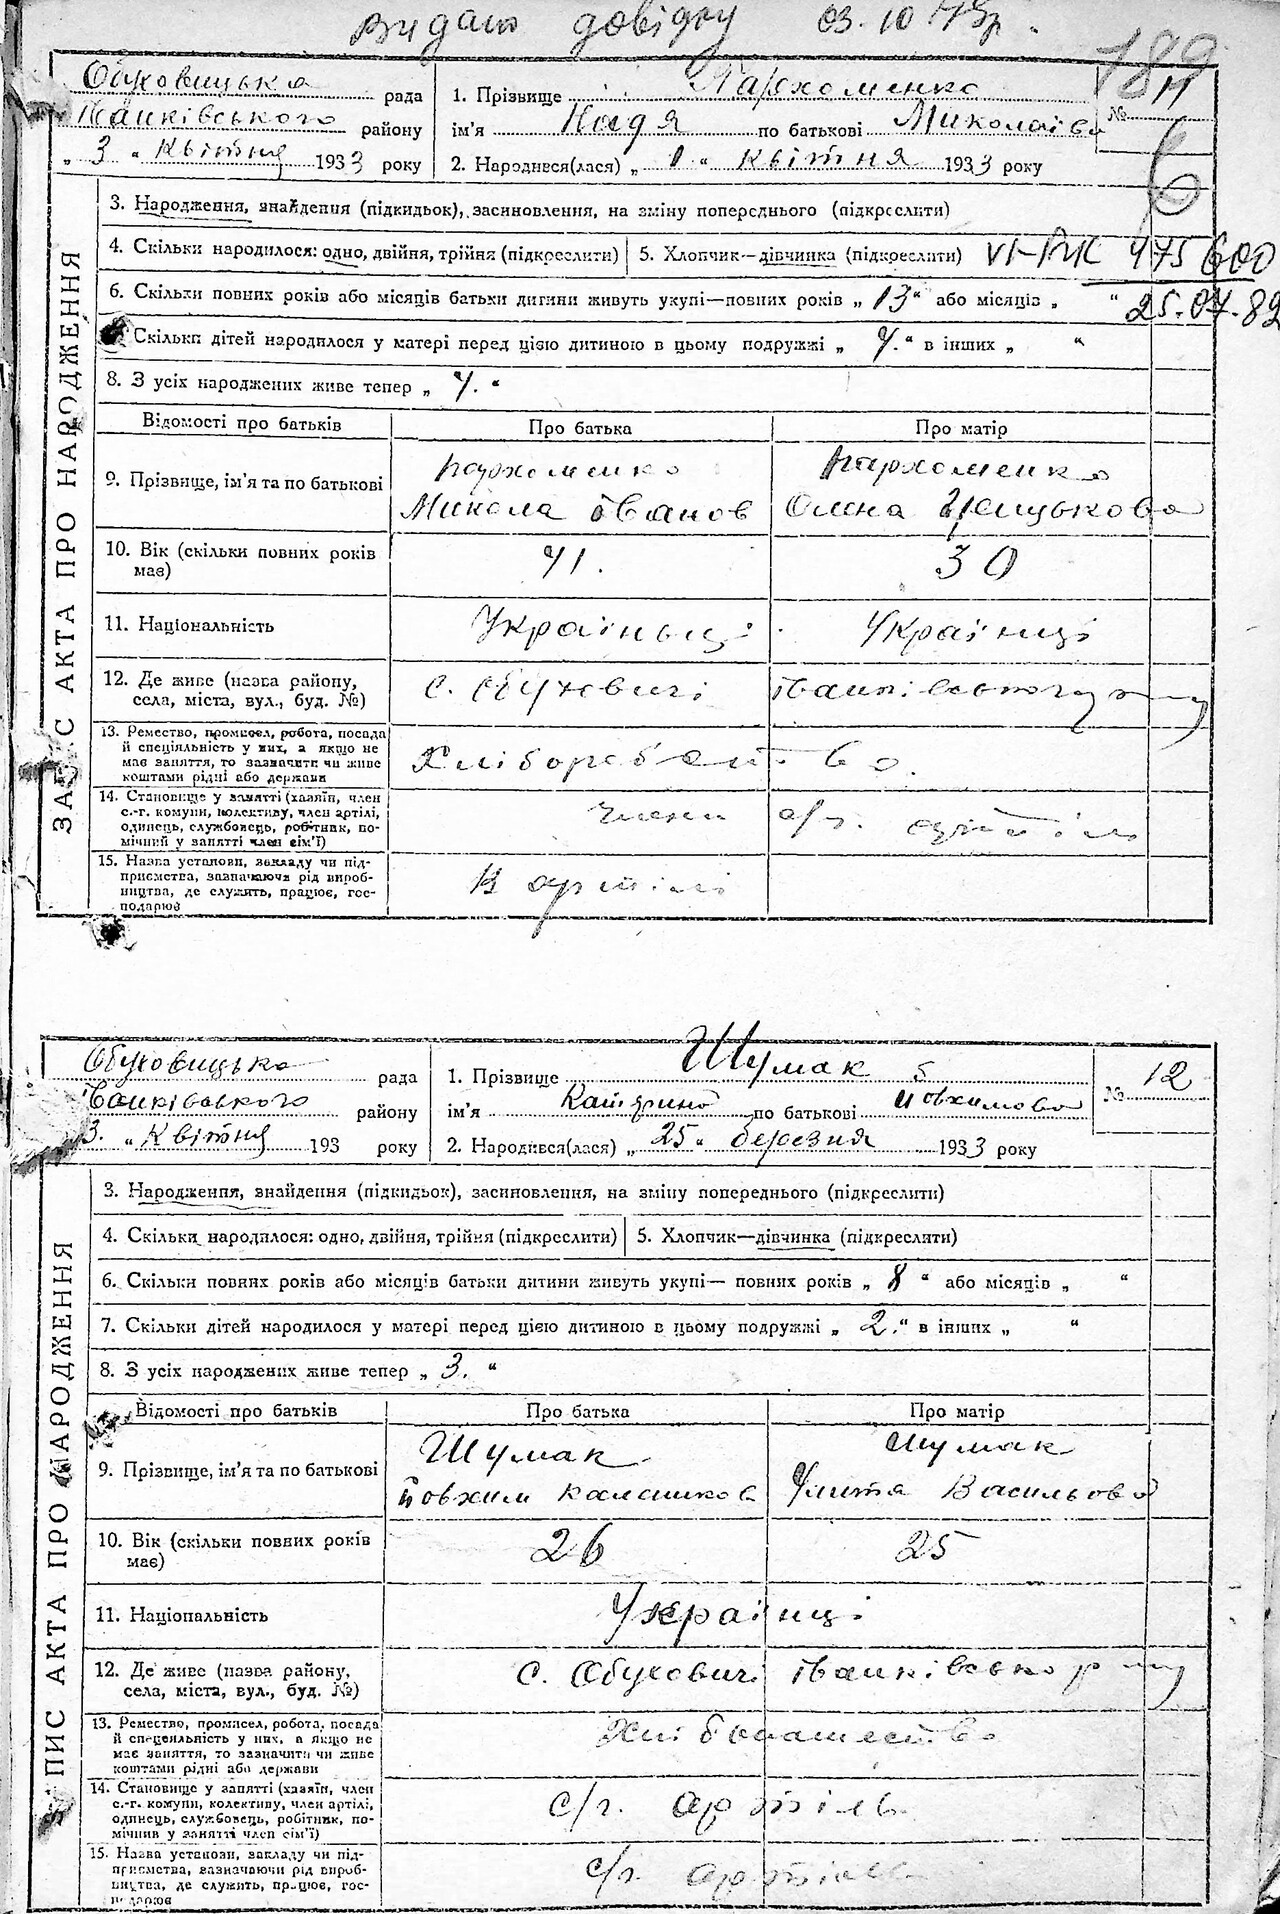 Видана довідку 03.10.75р.
189
Обуховицька рада
Іванківського району
„ 3 “ Квітня 1933 року
1. Прізвище Пархоменко
ім'я Надя по батькові Миколаївн
2. Народився(лася) „ 1 “ квітня 1933 року
№ 11
6
3. Народження, знайдення (підкидьок), засиновлення, на зміну попереднього (підкреслити)
4. Скільки народилося: одно, двійня, трійня (підкреслити) 5. Хлопчик—дівчинка (підкреслити) VI-БК 475600
6. Скільки повних років або місяців батьки дитини живуть укупі—повних років „ 13 “ або місяців „ “ 25.07.82
Скільки дітей народилося у матері перед цією дитиною в цьому подружжі „ 4. “ в інших „ “
8. З усіх народжених живе тепер „ 4. “
ЗАПИС АКТА ПРО НАРОДЖЕННЯ
Відомості про батьків Про батька Про матір
9. Прізвище, ім'я та по батькові
Пархоменко
Микола Іванов
Пархоменко
Олена Грицькова
10. Вік (скільки повних років має) 41. 30
11. Національність Українці Українці
12. Де живе (назва району, села, міста, вул., буд. №)
с. Обуховичі Іванківського р-ну
13. Ремество, промисел, робота, посада
й спеціяльність у них, а якщо не
має заняття, то зазначити чи живе
коштами рідні або держави
Хлібороб
14. Становище у занятті (хазяїн, член
с.-г. комуни, колективу, член артілі,
одинець, службовець, робітник, по-
мічний у занятті член сім'ї)
члени с/г. артіли
15. Назва установи, закладу чи під-
приємства, зазначаючи рід вироб-
ництва, де служить, працює, гос-
подарює
В артілі
Обуховицька рада
Іванківського району
3. “ Квітня 193 року
1. Прізвище Шумак
ім'я Катерина по батькові Йовхимова
2. Народився(лася) „ 25 “ березня 1933 року
№ 12
3. Народження, знайдення (підкидьок), засиновлення, на зміну попереднього (підкреслити)
4. Скільки народилося: одно, двійня, трійня (підкреслити) 5. Хлопчик—дівчинка (підкреслити)
6. Скільки повних років або місяців батьки дитини живуть укупі— повних років „ 8 “ або місяців „ “
7. Скільки дітей народилося у матері перед цією дитиною в цьому подружжі „ 2. “ в інших „ “
8. З усіх народжених живе тепер „ 3. “
ПИС АКТА ПРО НАРОДЖЕННЯ
Відомості про батьків Про батька Про матір
9. Прізвище, ім'я та по батькові
Шумак
Йовхим Калашков
Шумак
Улита Васильова
10. Вік (скільки повних років має) 26 25
11. Національність Українці
12. Де живе (назва району, села, міста, вул., буд. №)
с. Обуховичі Іванківсько р-ну
13. Ремество, промисел, робота, посада
й спецеяльність у них, а якщо не
має заняття, то зазначити чи живе
коштами рідні або держави
14. Становище у занятті (хазяїн, член
с.-г. комуни, колективу, член артілі,
одинець, службовець, робітник, по-
мічнив у занятті член сім'ї)
с/г. артіль
15. Назва установи, закладу чи під-
приємства, зазначаючи рід вироб-
ництва, де служить, працює, гос-
подарює
с/г. артіль